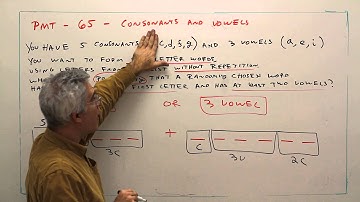 PMT - 65 - CONSONANTS AND VOWELS
YOU HAVE 5 CONSONANTS C, d, f, g) AND 3 VOWELS (a, e, i)
YOU WANT TO FORM LETTER WORDS
USING LETTERS FROM LIST WITHOUT REPETITION
THAT A RANDOMLY CHOSEN WORD
HA FIRST LETTER AND HAS AT LEAST TWO VOWELS?
OR 3 VOWEL
+
C
3C 3V 2C